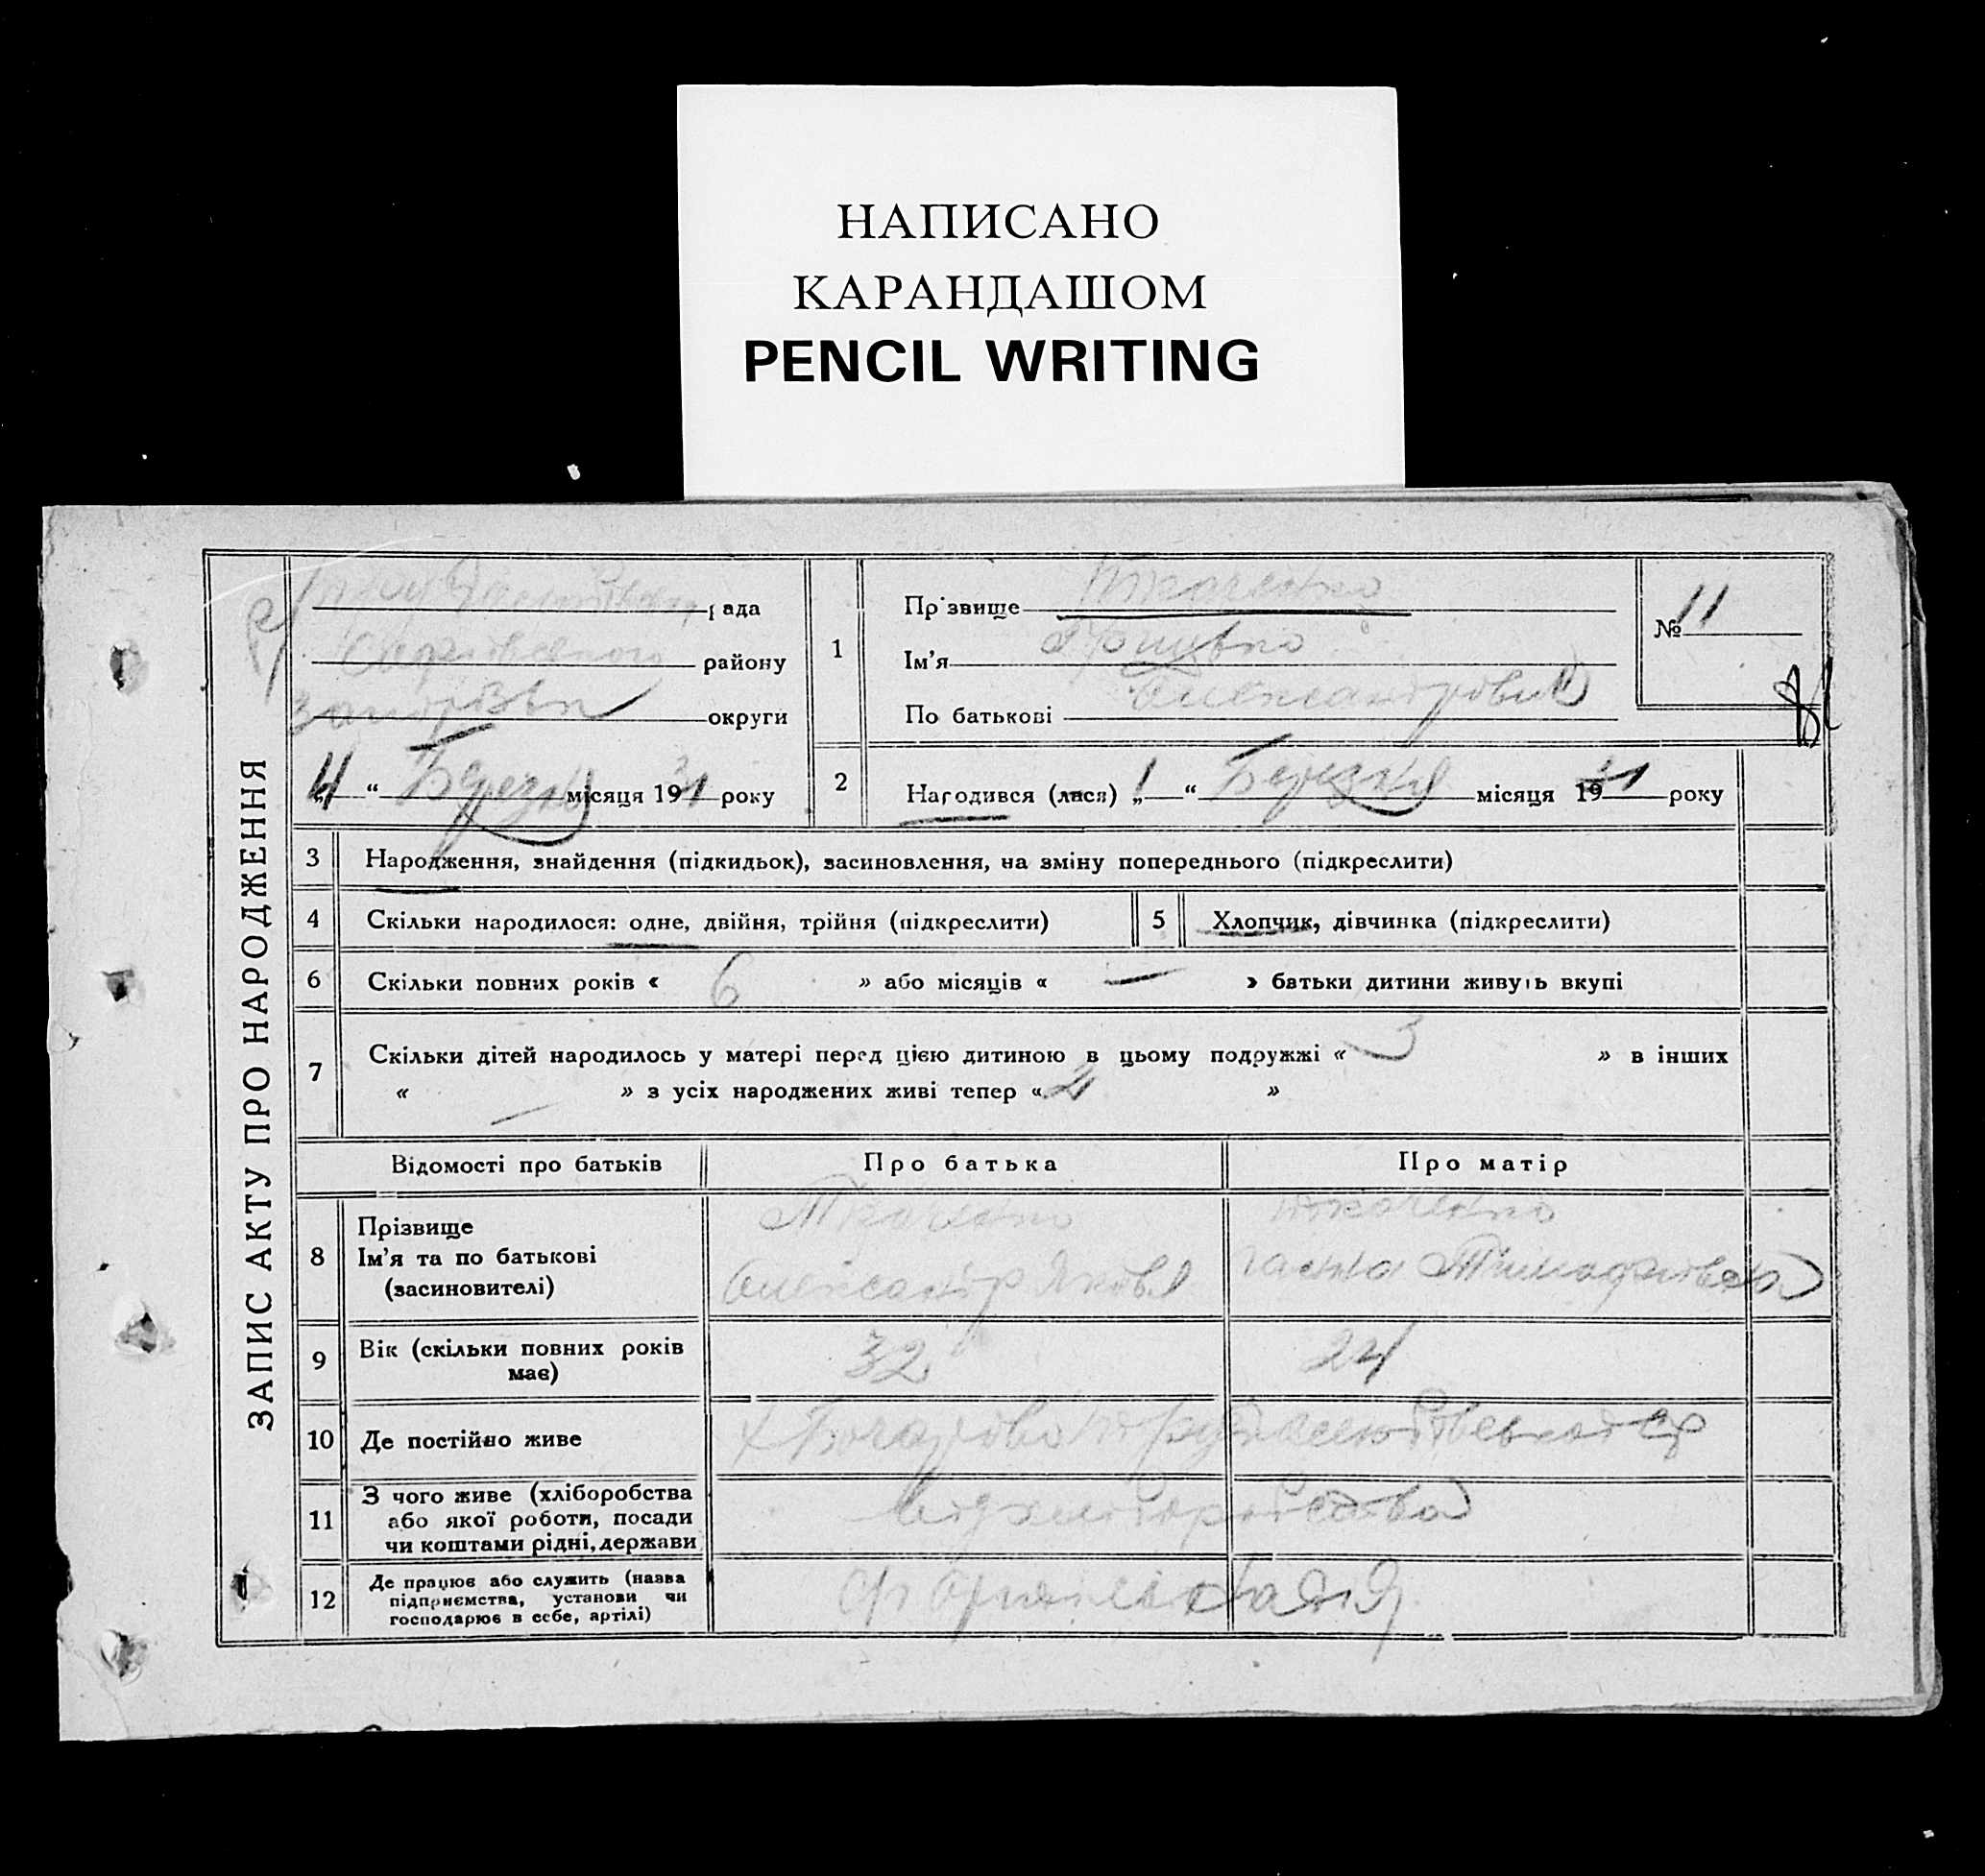 НАПИСАНО
КАРАНДАШОМ
PENCIL WRITING
ЗАПИС АКТУ ПРО НАРОДЖЕННЯ
рада
району
округи
4 " Березня місяця 1931 року
1
Прізвище Ткаченко
Ім'я
По батькові Олександрович
№ 11
2
Народився (лася) „1 " Березня місяця 1931 року
3 Народження, знайдення (підкидьок), засиновлення, на зміну попереднього (підкреслити)
4 Скільки народилося: одне, двійня, трійня (підкреслити)
5 Хлопчик, дівчинка (підкреслити)
6 Скільки повних років « 6 » або місяців « — » батьки дитини живуть вкупі
7 Скільки дітей народилось у матері перед цією дитиною в цьому подружжі « 3 » в інших
« — » з усіх народжених живі тепер « 2 »
Відомості про батьків
Про батька
Про матір
8 Прізвище
Ім'я та по батькові
(засиновителі)
Ткаченко
Олександр Яковл
Ткаченко
Ганна
9 Вік (скільки повних років
має)
32
24
10 Де постійно живе
11 З чого живе (хліборобства
або якої роботи, посади
чи коштами рідні, держави
хліборобства
12 Де працює або служить (назва
підприємства, установи чи
господарює в себе, артілі)